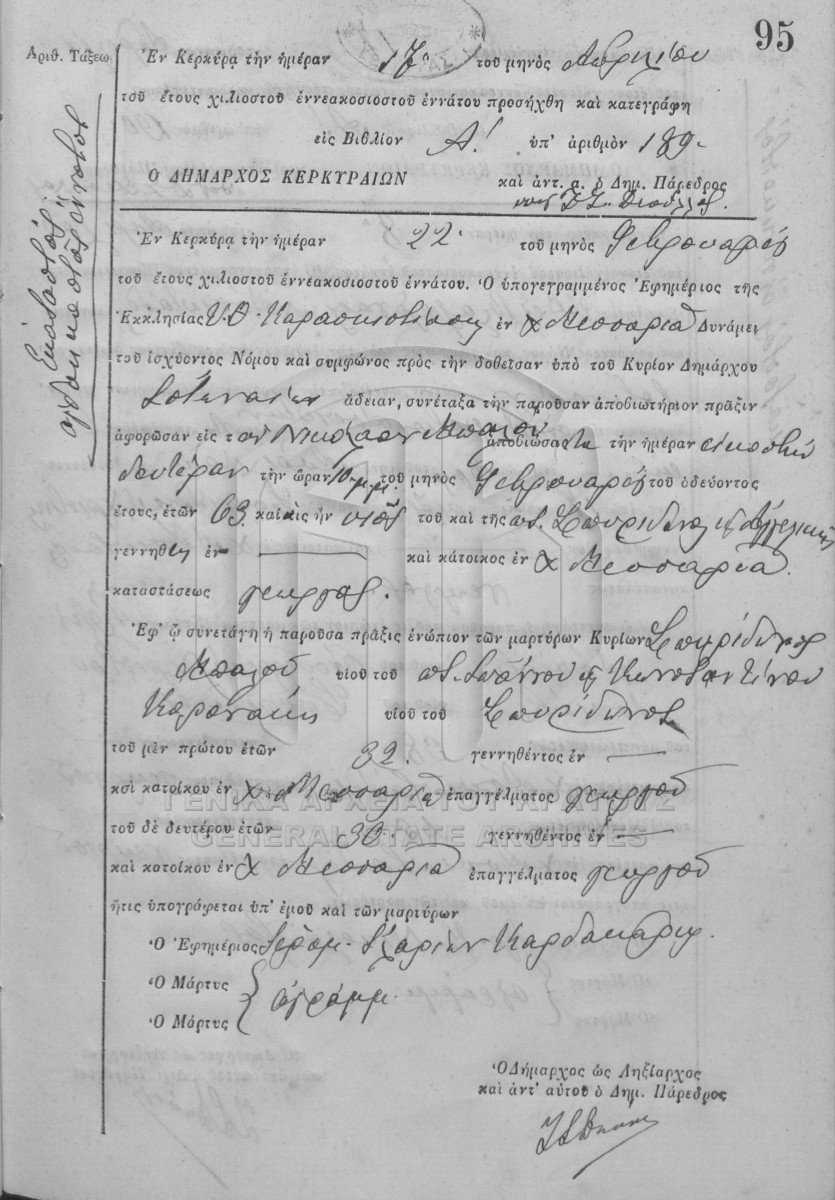 95
Αριθ. Τάξεω
Ἑκατοστὸς
ὀγδοηκοστὸς ἔννατος
Ἐν Κερκύρᾳ τὴν ἡμέραν 17 τοῦ μηνὸς Ἀπριλίου
τοῦ ἔτους χιλιοστοῦ ἐννεακοσιοστοῦ ἐννάτου προσήχθη καὶ κατεγράφη
εἰς Βιβλίον Α! ὑπ' ἀριθμὸν 189
Ο ΔΗΜΑΡΧΟΣ ΚΕΡΚΥΡΑΙΩΝ καὶ ἀντ. α. ὁ Δημ. Πάρεδρος
Ἐν Κερκύρᾳ τὴν ἡμέραν 22 τοῦ μηνὸς Φεβρουαρίου
τοῦ ἔτους χιλιοστοῦ ἐννεακοσιοστοῦ ἐννάτου. Ὁ ὑπογεγραμμένος Ἐφημέριος τῆς
Ἐκκλησίας Υ.Θ. ἐν χ Μεσαριᾷ Δυνάμει
τοῦ ἰσχύοντος Νόμου καὶ συμφώνος πρὸς τὴν δοθεῖσαν ὑπὸ τοῦ Κυρίου Δημάρχου
ἄδειαν, συνέταξα τὴν παροῦσαν ἀποβιωτήριον πρᾶξιν
ἀφορῶσαν εἰς τὸν Νικόλαον Μπαλοῦ ἀποβιώσαντα τὴν ἡμέραν εἰκοστὴν
δευτέραν τὴν ὥραν 10 μ.μ. τοῦ μηνὸς Φεβρουαρίου τοῦ ὁδεύοντος
ἔτους, ἐτῶν 63 καὶ εἰς ἦν υἱὸς τοῦ καὶ τῆς π. Σπυρίδωνος καὶ Ἀγγελικῆς
γεννηθεὶς ἐν — καὶ κάτοικος ἐν χ Μεσαριᾷ.
καταστάσεως γεωργὸς.
Ἐφ' ᾧ συνετάγη ἡ παροῦσα πρᾶξις ἐνώπιον τῶν μαρτύρων Κυρίων Σπυρίδωνος
Μπαλοῦ υἱοῦ τοῦ π. Ἰωάννου καὶ Κωνσταντίνου
Καρανάκη υἱοῦ τοῦ Σπυρίδωνος
τοῦ μὲν πρώτου ἐτῶν 32. γεννηθέντος ἐν —
καὶ κατοίκου ἐν χ Μεσαριᾷ ἐπαγγέλματος γεωργοῦ
ΓΕΝΙΚΑ ΑΡΧΕΙΑ ΤΟΥ ΚΡΑΤΟΥΣ
τοῦ δὲ δευτέρου ἐτῶν 30 γεννηθέντος ἐν —
GENERAL STATE ARCHIVES
καὶ κατοίκου ἐν χ Μεσαριᾷ ἐπαγγέλματος γεωργοῦ
ἥτις ὑπογράφεται ὑπ' ἐμοῦ καὶ τῶν μαρτύρων
Ὁ Ἐφημέριος Ἱερομ.
Ὁ Μάρτυς
ἀγράμμ.
Ὁ Μάρτυς
Ὁ Δήμαρχος ὡς Ληξίαρχος
καὶ ἀντ' αὐτοῦ ὁ Δημ. Πάρεδρος